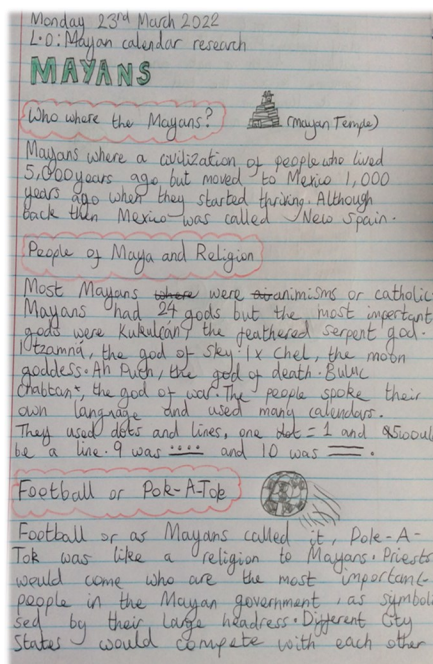 Monday 23rd March 2022
L.O: Mayan calendar research
MAYANS
Who where the Mayans?
(Mayan Temple)
Mayans where a civilization of people who lived
5,000 years ago but moved to Mexico 1,000
years ago when they started thriving. Although
back then Mexico was called New Spain.
People of Maya and Religion
Most Mayans where were animisms or catholic
Mayans had 24 gods but the most important
gods were Kukulcán, the feathered serpent god.
Itzamná, the god of sky. Ix Chel, the moon
goddess. Ah Puch, the god of death. Buluc
Chabtan, the god of war. The people spoke their
own language and used many calendars.
They used dots and lines, one dot = 1 and 5 would
be a line. 9 was and 10 was
Football or Pok-A-Tok
Football or as Mayans called it, Pok-A-
Tok was like a religion to Mayans. Priests
would come who are the most important
people in the Mayan government, as symboli
sed by their large headress. Different City
States would compete with each other